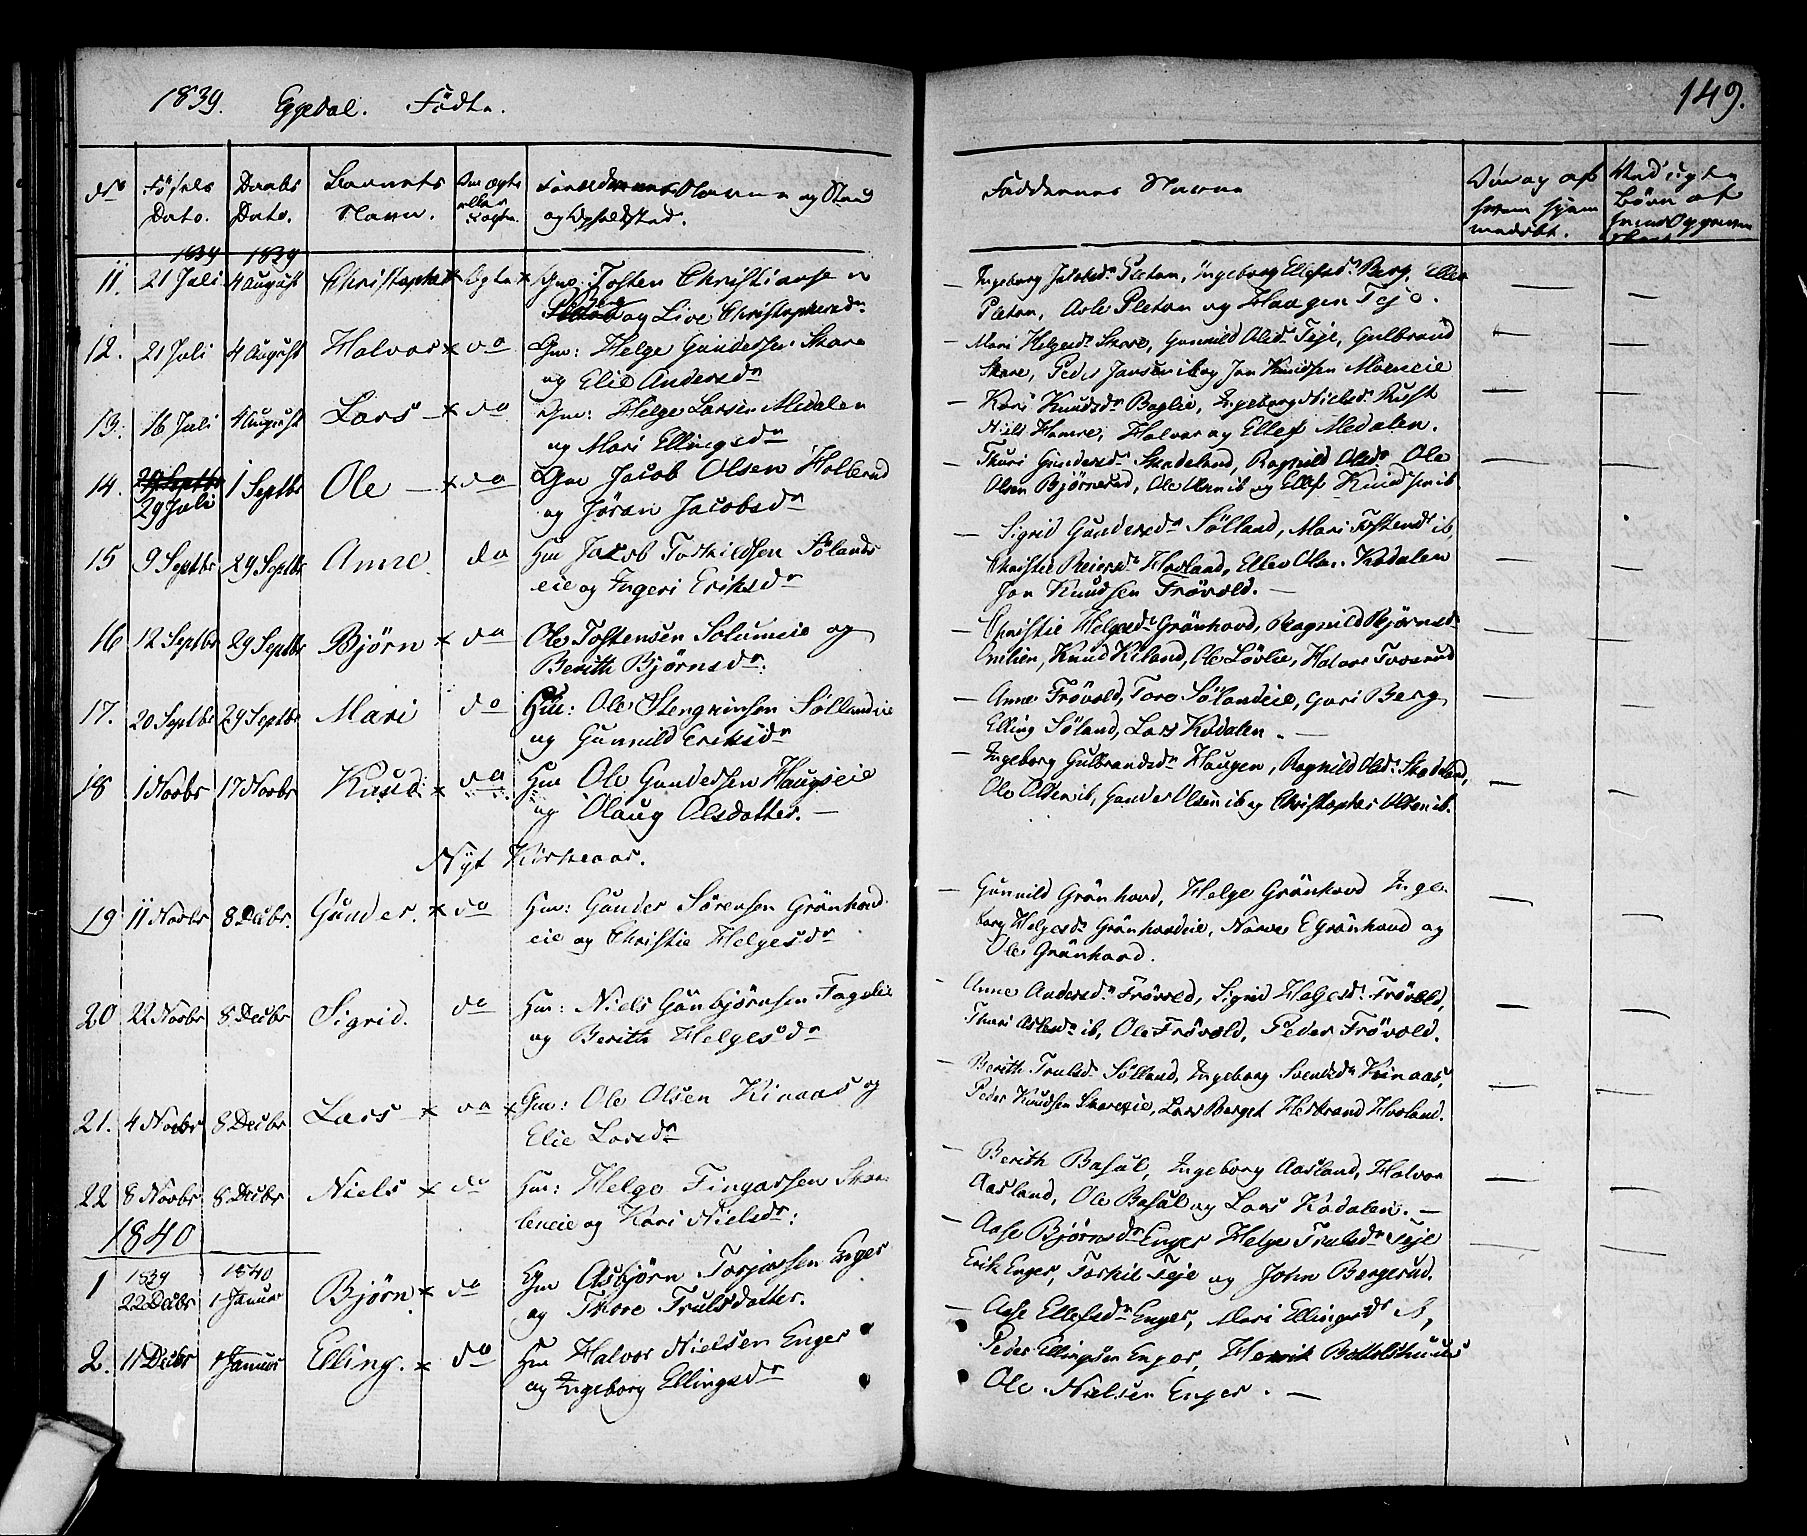 1839. Eggedal. Fødte.
149.
No Fødsels Dato. Daabs Dato. Barnets Navn. Om Ægte eller Uægte. Forældrenes Navne og Stand og Opholdssted.
Faddernes Navne
1839 1839
11. 21 Juli 4 August Christopher x Ægte x Gm: Tosten Christiansen
og Live Christophersdr
— Ingeborg Jacobsdr Pleten, Ingeborg Ellefsdr Berg, Ellev
Pleten, Asle Pleten og Haagen Teje.
12. 21 Juli 4 August Halvor x do Gm: Helge Gundersen Skare
og Elie Andersdr
— Mari Helgesdr Skare, Gunnild Olsdr Teje, Gulbrand
Skare, Peder Jansen ib og Jon Knudsen Moeneie
13. 16 Juli 4 August Lars — x do Gm: Helge Larsen Medalen
og Mari Ellingsdr
— Kari Knudsdr Baglie, Ingeborg Nielsdr Rust
Niels Hamre, Halvor og Ellef Medalen.
14. 29 Septbr 1 Septbr Ole — x do Gm Jacob Olsen Hollerud
29 Juli og Jøran Jacobsdr
— Thuri Gundersdr Skadeland, Ragnild Olsdr Ole
Olsen Bjørnerud, Ole Olsen ib og Ellef Knudsen ib
15 9 Septbr 29 Septbr Anne do Gm Jacob Torkildsen Sølands
eie og Ingeri Eriksdr
— Sigrid Gundersdr Sølland, Mari Tostensdr ib,
Christie Reiersdr Hovland, Ellev Olsen Kødalen
Jon Knudsen Frøvold. —
16 12 Septbr 29 Septbr Bjørn x do Ole Tostensen Solumeie og
Berith Bjørnsdr.
— Christie Helgesdr Grønhovd, Ragnild Bjørnsdr
Knud Kiland, Ole Løvlie, Halvor
17. 20 Septbr 29 Septbr Mari do Gm: Ole Stengrimsen Søllandeie
og Gunnild Eriksdr
— Anne Frøvold, Tore Sølandeie, Guri Berg
Elling Søland, Lars Kødalen. —
18 1 Novbr 17 Novbr Knud x do Gm Ole Gundersen Haugseie
og Olaug Olsdatter. —
— Ingeborg Gulbrandsdr Haugen, Ragnild Olsdr Skadeland,
Ole Olsen ib, Gunder Olsen ib og Christopher Olsen ib.
Nyt Kirkeaar.
19 11 Novbr 8 Decbr. Gunder. x do Gm: Gunder Sørensen Grønhovd
eie og Christie Helgesdr
— Gunnild Grønhovd, Helge Grønhovd Inge
borg Helgesdr Grønhovdeie, Narve E Grønhovd og
Ole Grønhovd.
20 22 Novbr 8 Decbr Sigrid. do Gm: Niels Gunbjørnsen Fagerlie
og Berith Helgesdr
— Anne Andersdr Frøvold, Sigrid Helgesdr Frøvold,
Thuri Aslesdr ib, Ole Frøvold, Peder Frøvold.
21. 4 Novbr 8 Decbr Lars x do x Gm: Ole Olsen Kinaas og
Elie Larsdr
— Berith Trulsdr Sølland, Ingeborg Svendsdr Kinaas,
Peder Knudsen Skareeie, Lars Berget Herbrand Hovland.
22 8 Novbr 8 Decbr Niels x do Gm: Helge Fingarsen Skaa
leneie og Kari Nielsdr:
— Berith Basul, Ingeborg Aasland, Halvor
Aasland, Ole Basul og Lars Kødalen. —
1840
1839 1840
1 22 Decbr 1 Januar Bjørn x do Gm Asbjørn Torjersen Enger
og Thore Trulsdatter.
— Aase Bjørnsdr Enger Helge Trulsdr Teje
Erik Enger, Torkil Teje og John Bergerud.
2. 11 Decbr 1 Januar Elling. x do Gm Halvor Nielsen Enger
og Ingeborg Ellingsdr
— Aase Ellefsdr Enger, Mari Ellingsdr ib,
Peder Ellingsen Enger, Henrik
Ole Nielsen Enger. —